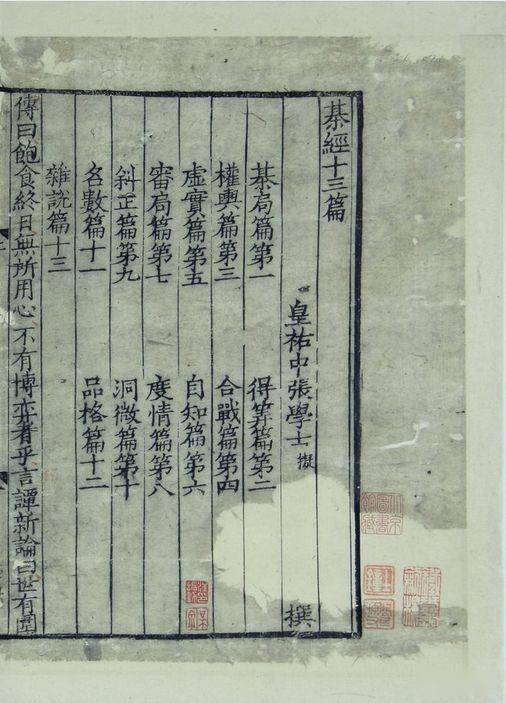 棊經十三篇
皇祐中張學士擬 撰
棊局篇第一 得筭篇第二
權輿篇第三 合戰篇第四
虛實篇第五 自知篇第六
審局篇第七 度情篇第八
斜正篇第九 洞微篇第十
名數篇十一 品格篇十二
雜說篇十三
傳曰飽食終日無所用心不有博弈者乎言譚新論曰世有圍